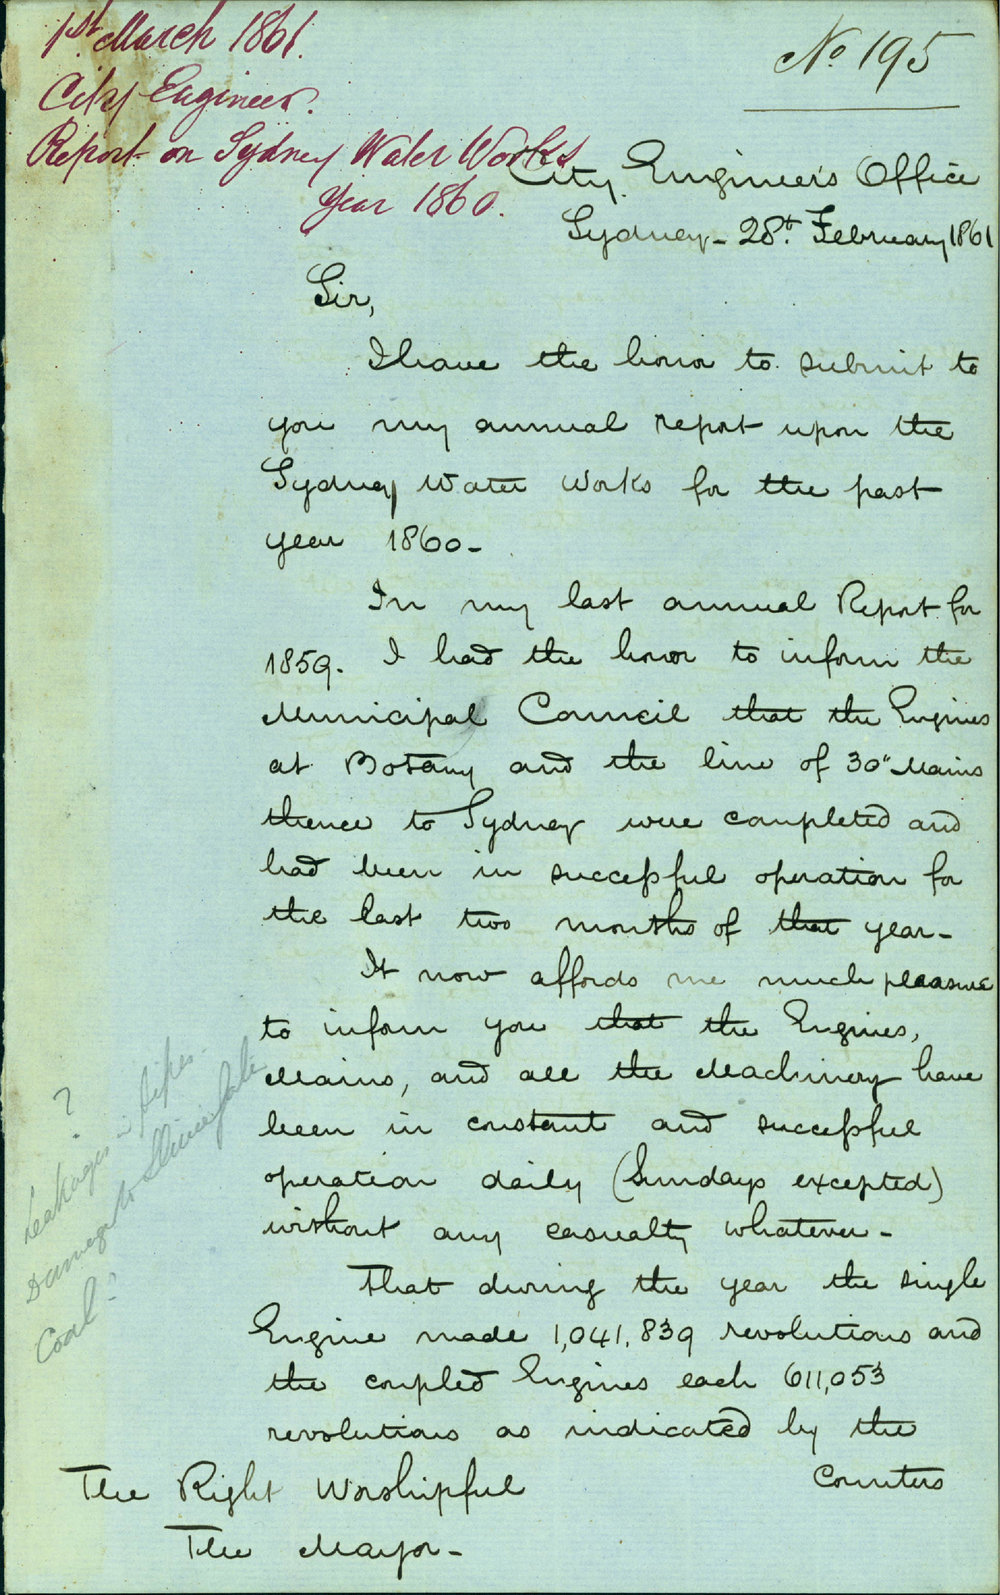 1st March 1861.
City Engineer.
Report on Sydney Water Works
Year 1860.
No 195
City Engineers Office
Sydney - 28th February 1861
Sir,
I have the honor to submit to
you my annual report upon the
Sydney Water Works for the past
year 1860 -
In my last annual Report for
1859. I had the honor to inform the
Municipal Council that the Engines
at Botany and the line of 30" Mains
thence to Sydney were completed and
had been in successful operation for
the last two months of that year -
It now affords me much pleasure
to inform you that the Engines,
Mains, and all the Machinery have
been in constant and successful
operation daily (Sundays excepted)
without any casualty whatever -
That during the year the single
Engine made 1,041,839 revolutions and
the coupled Engines each 611,053
revolutions as indicated by the
Counters
The Right Worshipful
The Mayor -
?
Leakages in pipes.
Damage to Sluice gate
Coal?